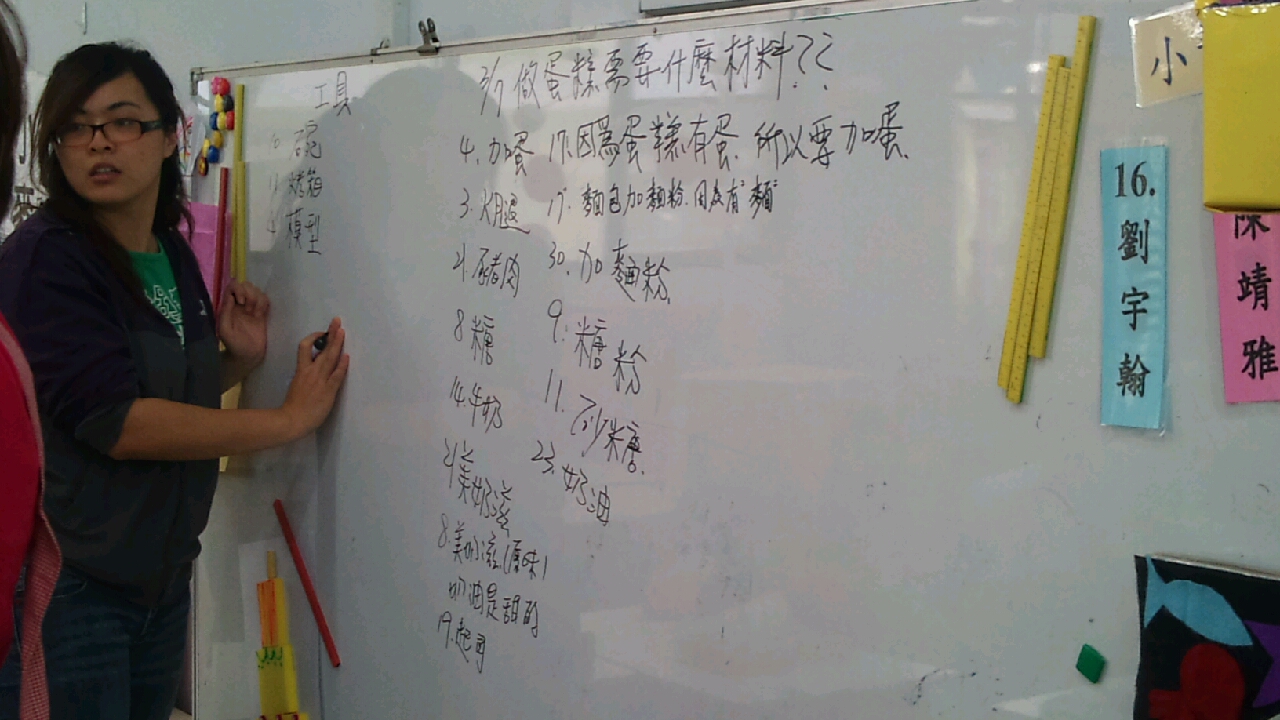 工具
碗
烤箱
4 模型
3/7 做蛋糕需要什麼材料??
4. 加蛋
3. 火腿
21 豬肉
8 糖
14. 牛奶
21 美奶滋
8. 美奶滋(原味)
奶油是甜的
19. 起司
17. 因為蛋糕有蛋, 所以要加蛋.
17. 麵包加麵粉. 因為有"麵"
30. 加麵粉
9. 糖粉
11. 砂糖.
23. 奶油
小
16.
劉宇翰
陳靖雅